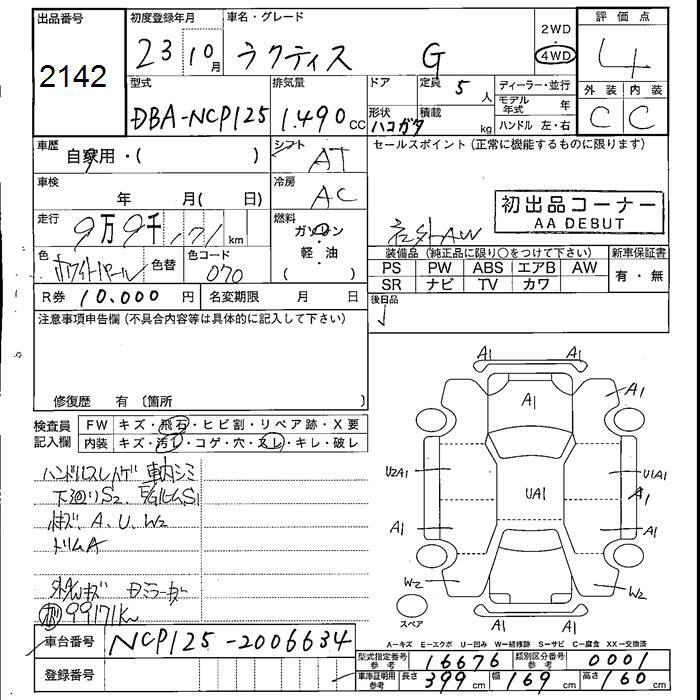 出品番号
2142
初度登録年月
23 10月
車名・グレード
ラクティス G
2WD
4WD
評価点
4
外装 内装
C C
型式
DBA-NCP125
排気量
1.490 CC
ドア
形状
ハコガタ
定員
5人
積載
kg
ディーラー・並行
モデル年式 年
ハンドル 左・右
車歴
自家用・( )
シフト
AT
セールスポイント(正常に機能するものに限ります)
車検
年 月( 日)
冷房
AC
初出品コーナー
AA DEBUT
走行
9万9千171km
燃料
ガソリン
軽・油
( )
社外AW
色
ホワイトパール
色替
色コード
070
装備品(純正品に限り○をつけて下さい)
新車保証書
PS PW ABS エアB AW
SR ナビ TV カワ
有・無
R券 10.000円
名変期限 月 日
後日品
注意事項申告欄(不具合内容等は具体的に記入して下さい)
修復歴 有〔箇所 〕
検査員
記入欄
FW キズ・飛石・ヒビ割・リペア跡・X要
内装 キズ・汚レ・コゲ・穴・スレ・キレ・破レ
ハンドルスレハゲ 車内シミ
下廻りS2.
キズ、A、U、W2
ドリムA
外AWキズ
99171Km
A1 A1
A1 A1
U2A1 UA1 U1A1
A1
A1 A1
W2 W2
スペア
A1 A1
A=キズ E=エクボ U=凹み W=補修跡 S=サビ C=腐食 XX=交換済
車台番号 NCP125-2006634
登録番号
型式指定番号
参考
16676
類別区分番号
参考
0001
車庫証明用
参考
長さ 399cm 幅 169cm 高さ 160cm